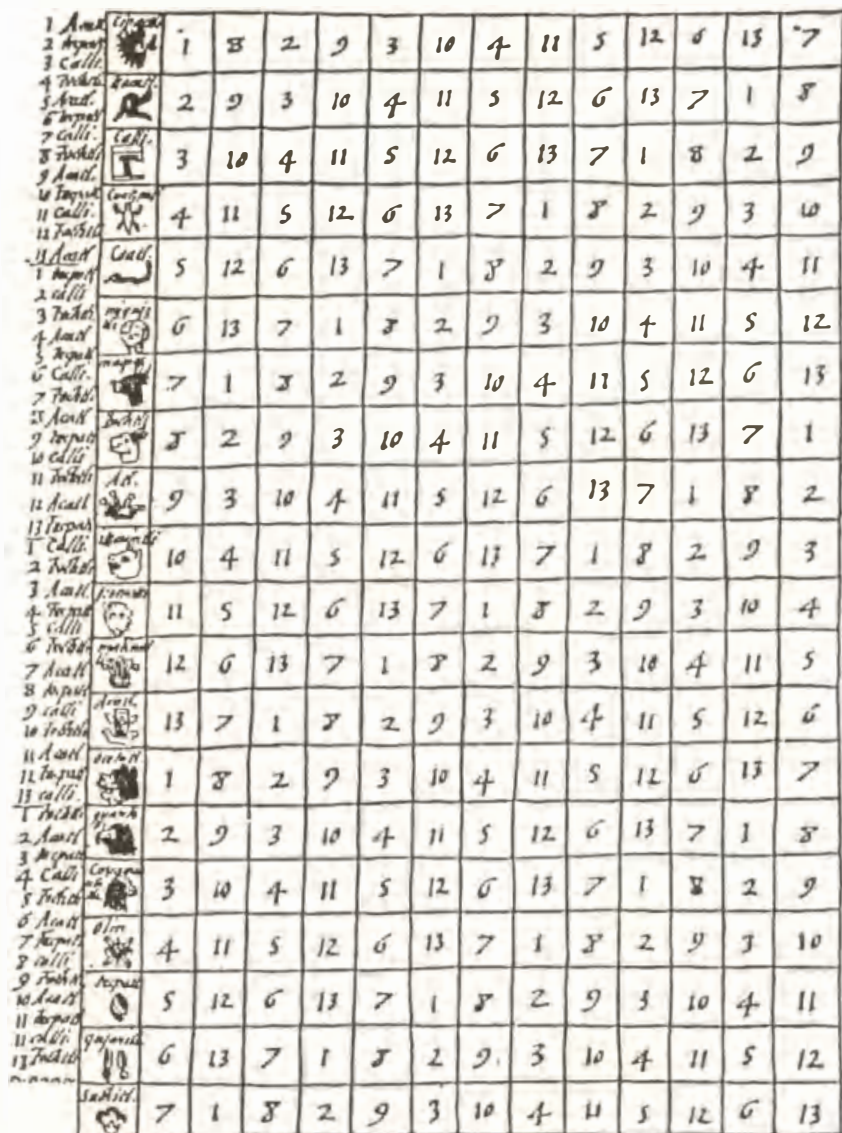 1 Acatl
2 tecpatl
3 Calli.
4 Tochtli
5 Acatl.
6 tecpatl
7 Calli
8 Tochtli
9 Acatl
10 Tecpatl
11 Calli.
12 Tochtli
13 Acatl
1 tecpatl
2 calli
3 Tochtli
4 Acatl
5 Tecpatl
6 Calli.
7 Tochtli
8 Acatl
9 tecpatl
10 calli
11 Tochtli
12 Acatl
13 Tecpatl
1 Calli
2 Tochtli
3 Acatl
4 Tecpatl
5 Calli
6 Tochtli
7 Acatl
8 tecpatl
9 calli
10 Tochtli
11 Acatl
12 tecpatl
13 calli.
1 Tochtli
2 Acatl
3 tecpatl
4 Calli
5 Tochtli
6 Acatl
7 Tecpatl
8 calli
9 Tochtli
10 Acatl
11 tecpatl
11 calli
13 Tochtli
1 8 2 9 3 10 4 11 5 12 6 13 7
2 9 3 10 4 11 5 12 6 13 7 1 8
Calli.
3 10 4 11 5 12 6 13 7 1 8 2 9
4 11 5 12 6 13 7 1 8 2 9 3 10
Coatl.
5 12 6 13 7 1 8 2 9 3 10 4 11
6 13 7 1 8 2 9 3 10 4 11 5 12
7 1 8 2 9 3 10 4 11 5 12 6 13
Tochtli
8 2 9 3 10 4 11 5 12 6 13 7 1
Atl.
9 3 10 4 11 5 12 6 13 7 1 8 2
10 4 11 5 12 6 13 7 1 8 2 9 3
11 5 12 6 13 7 1 8 2 9 3 10 4
12 6 13 7 1 8 2 9 3 10 4 11 5
Acatl.
13 7 1 8 2 9 3 10 4 11 5 12 6
1 8 2 9 3 10 4 11 5 12 6 13 7
2 9 3 10 4 11 5 12 6 13 7 1 8
3 10 4 11 5 12 6 13 7 1 8 2 9
Olin
4 11 5 12 6 13 7 1 8 2 9 3 10
tecpatl
5 12 6 13 7 1 8 2 9 3 10 4 11
6 13 7 1 8 2 9. 3 10 4 11 5 12
7 1 8 2 9 3 10 4 11 5 12 6 13